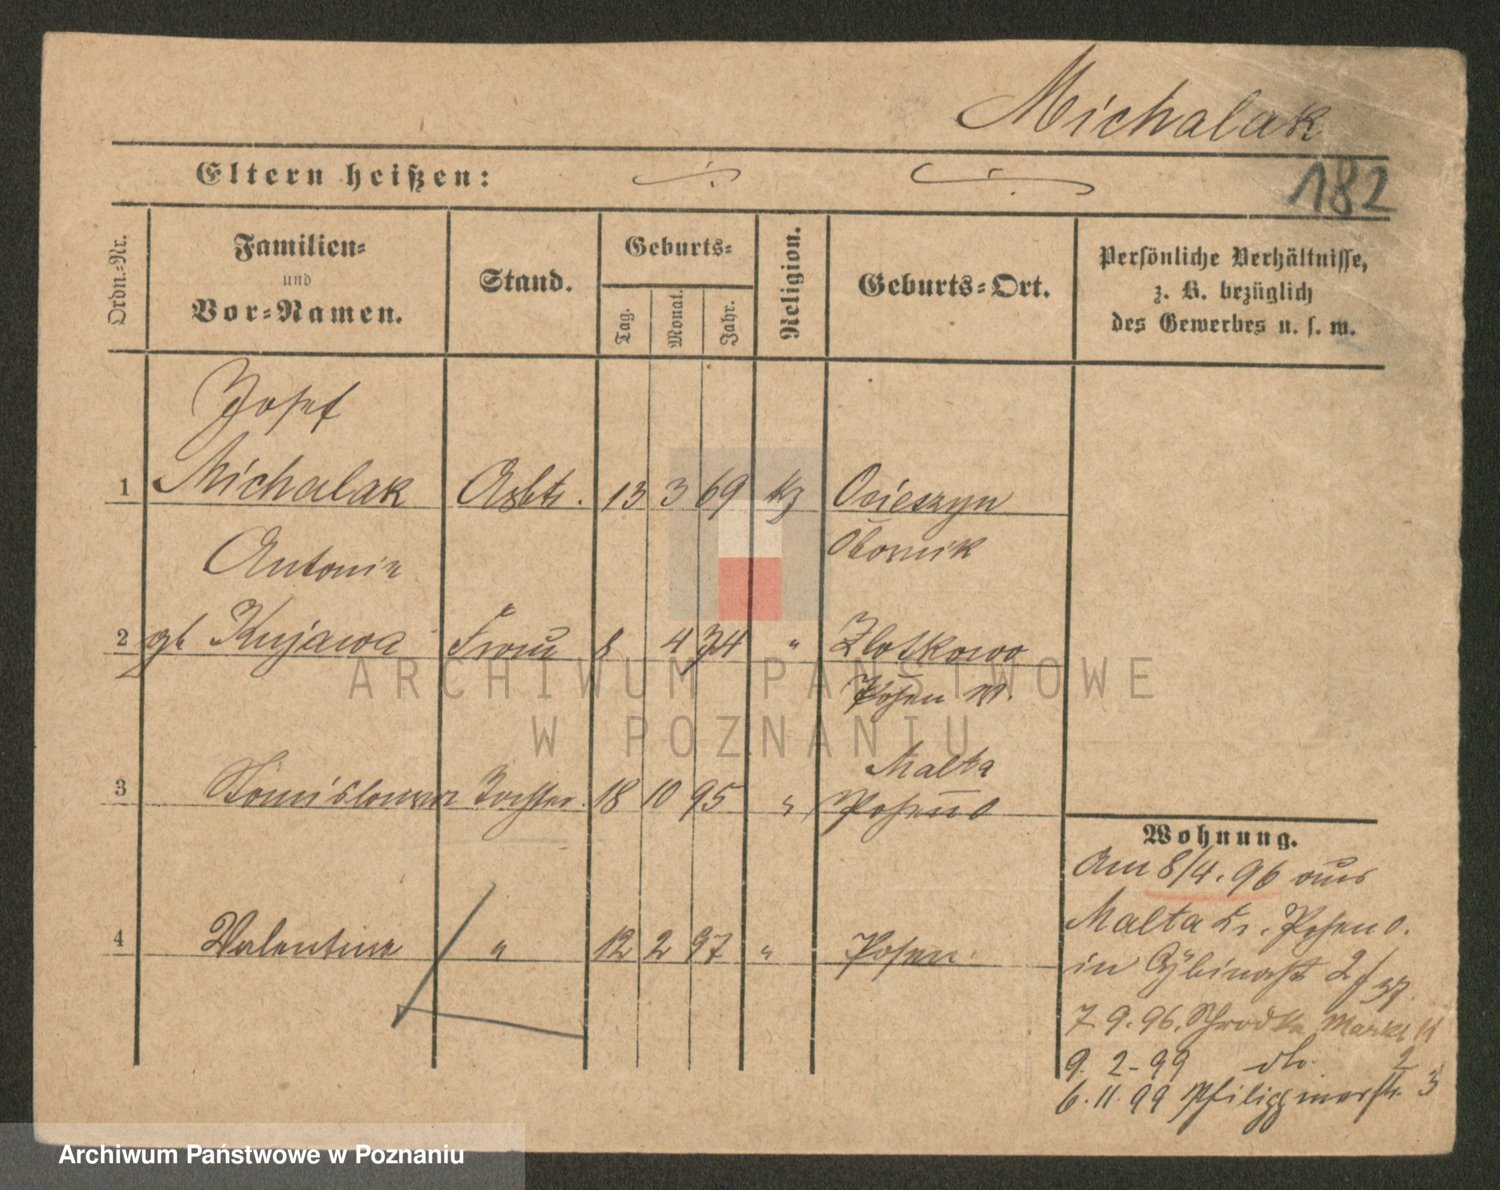 Michalak
182
Eltern heißen:
Ordn.-Nr.
Familien-
und
Vor-Namen.
Stand.
Geburts-
Tag.
Monat.
Jahr.
Religion.
Geburts-Ort.
Persönliche Verhältnisse,
z. B. bezüglich
des Gewerbes u. s. w.
Josef
1 Michalak Arbtr. 13 3 69 kz Ocieszyn
Antonie Obornik
2 gb Kujawa Frau 8 4 74 " Zlotkowo
Posen W.
Malta
3 Stanislawa Tochter. 18 10 95 " Posen O
4 Valentine " 12 2 97 " Posen.
Wohnung.
Am 8/4. 96 aus
Malta Kr. Posen O.
in Cybinastr 2 / 37.
7. 9. 96. Schrodka Markt 11
9. 2. 99 do. 2
6. 11. 99 Philippinerstr. 3
ARCHIWUM PAŃSTWOWE
W POZNANIU
Archiwum Państwowe w Poznaniu